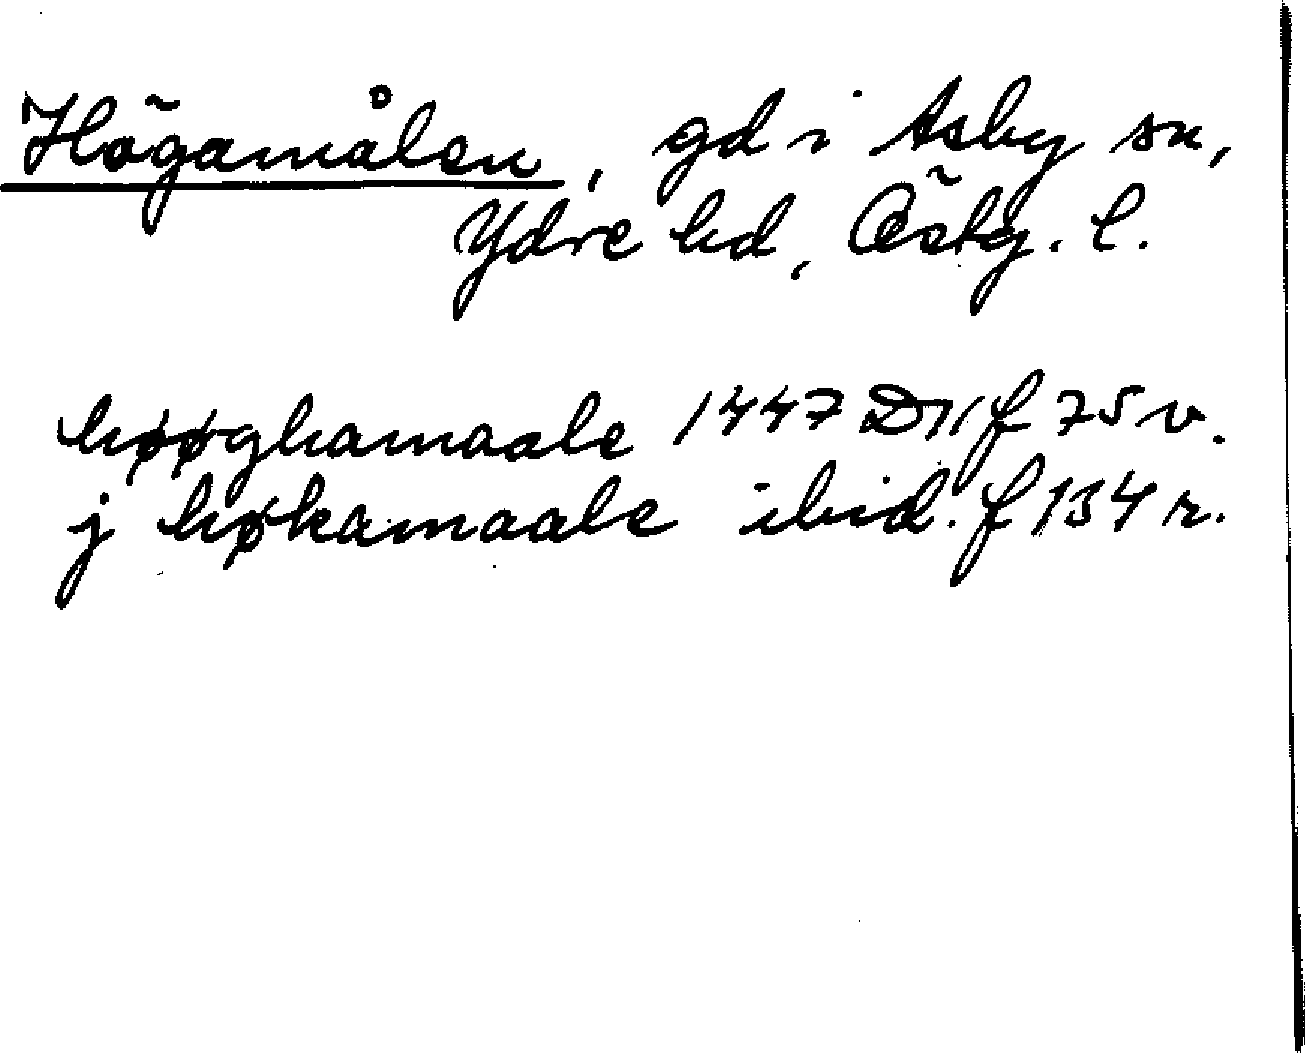 Högamålen, gd i Asby sn,
Ydre hd, Östg. l.
høøghamaale 1447 D11 f 75 v.
j høkamaale ibid. f 134 r.